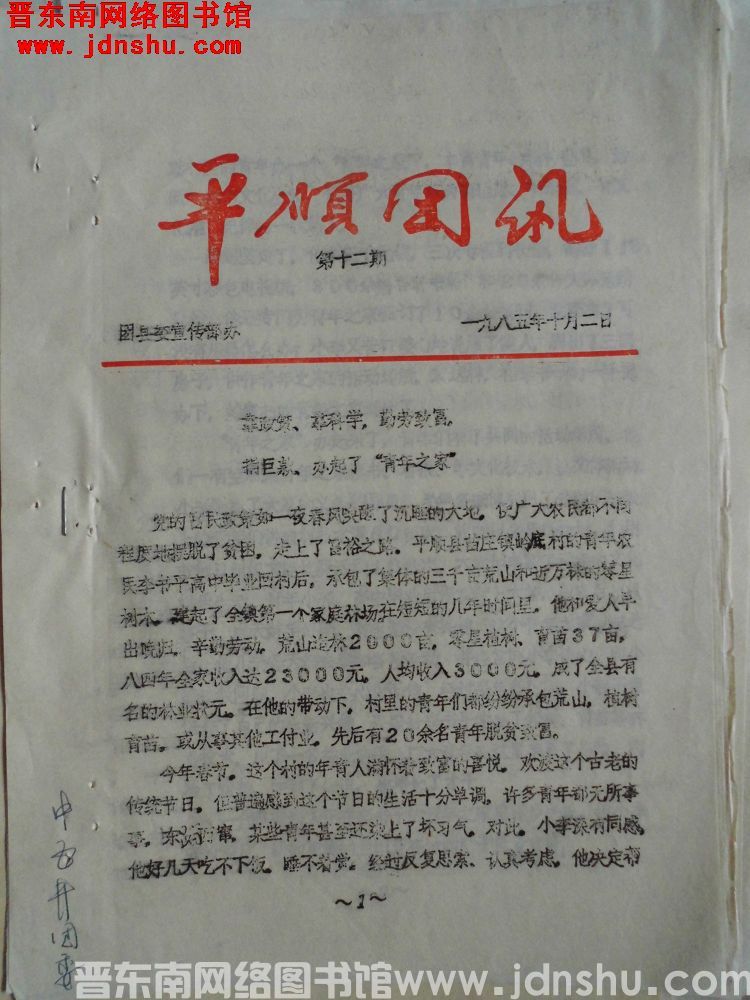 晋东南网络图书馆
www.jdnshu.com
平顺团讯
第十二期
团县委宣传部办 一九八五年十月二日
靠政策、靠科学，勤劳致富。
捐巨款、办起了“青年之家”
党的富民政策如一夜春风唤醒了沉睡的大地。使广大农民都不同
程度地摆脱了贫困，走上了富裕之路。平顺县苗庄镇岭底村的青年农
民李书平高中毕业回村后，承包了集体的三千亩荒山和近万株的零星
树木，建起了全镇第一个家庭林场，在短短的几年时间里，他和爱人早
出晚归、辛勤劳动，荒山造林2000亩，零星植树、育苗37亩。
八四年全家收入达23000元，人均收入3000元，成了全县有
名的林业状元。在他的带动下，村里的青年们都纷纷承包荒山，植树
育苗。或从事其他工付业。先后有20余名青年脱贫致富。
今年春节。这个村的年青人满怀着致富的喜悦。欢渡这个古老的
传统节日。但普遍感到这个节日的生活十分单调。许多青年都无所事
事，东游西窜，某些青年甚至还染上了坏习气。对此。小李深有同感，
他好几天吃不下饭，睡不着觉。经过反复思索、认真考虑。他决定帮
～1～
晋东南网络图书馆www.jdnshu.com